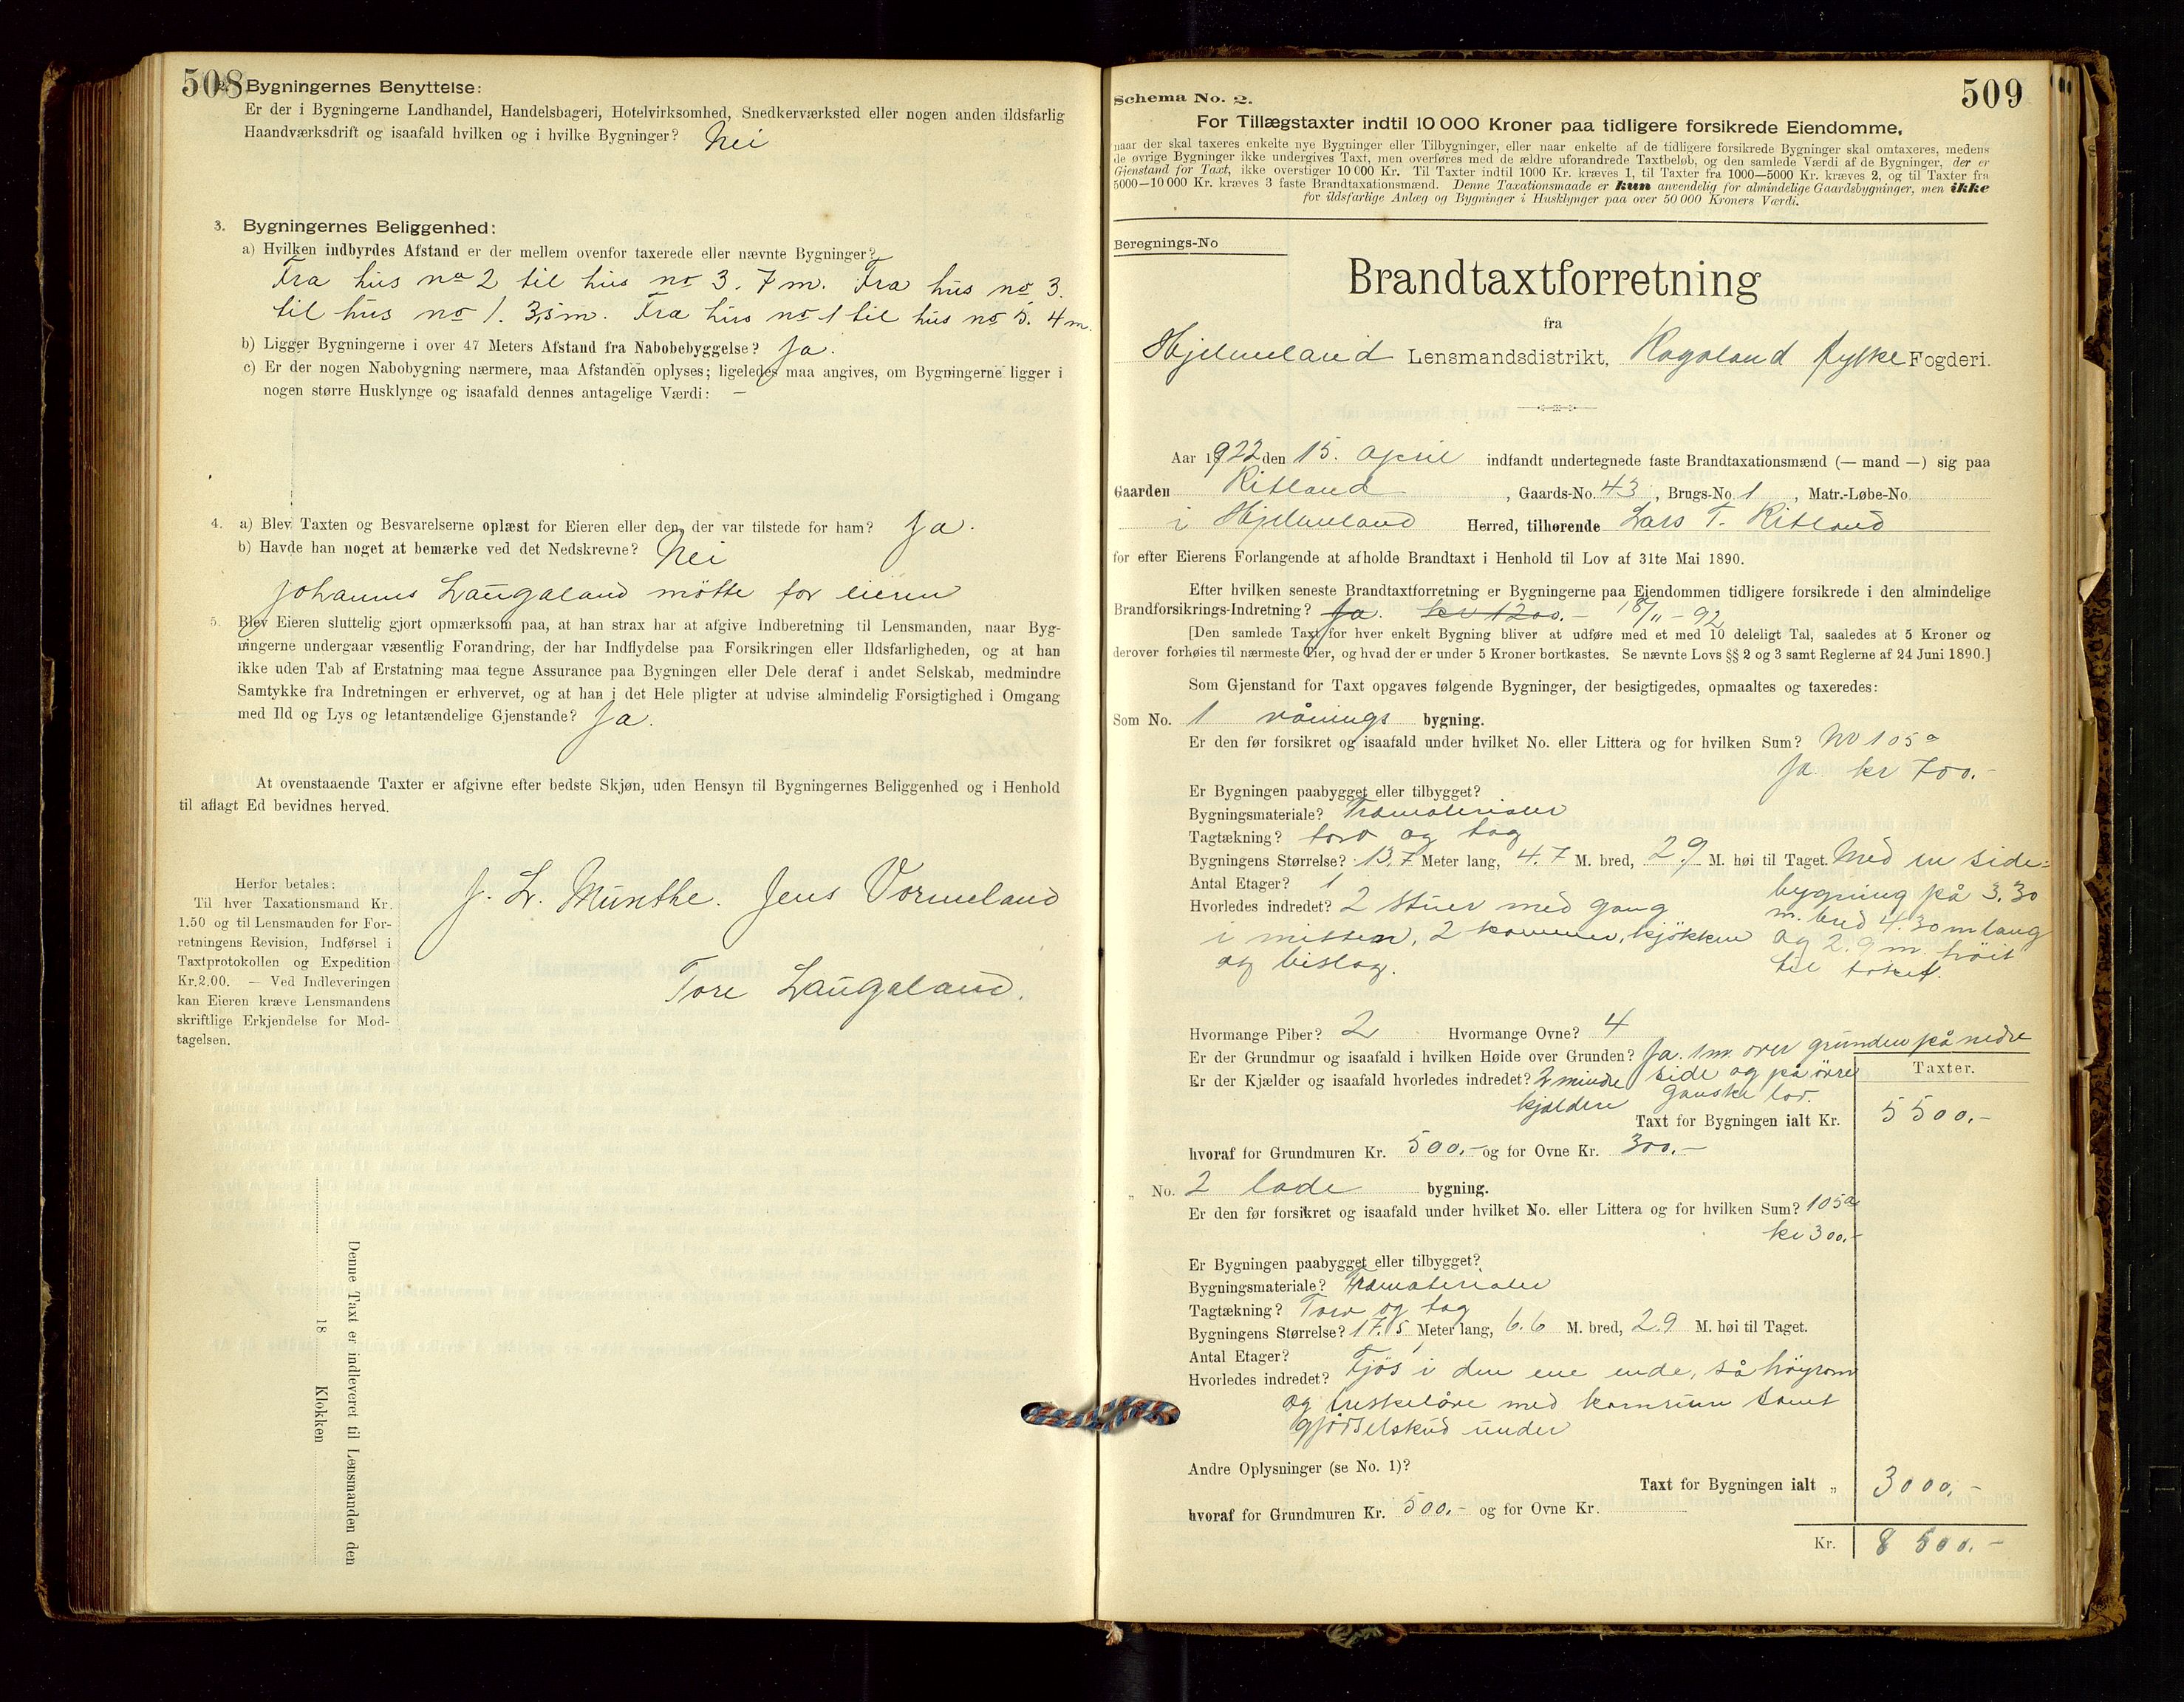 508
2. Bygningernes Benyttelse:
Er der i Bygningerne Landhandel, Handelsbageri, Hotelvirksomhed, Snedkerværksted eller nogen anden ildsfarlig
Haandværksdrift og isaafald hvilken og i hvilke Bygninger? Nei
3. Bygningernes Beliggenhed:
a) Hvilken indbyrdes Afstand er der mellem ovenfor taxerede eller nævnte Bygninger?
Fra hus no 2 til hus no 3. 7 m. Fra hus no 3.
til hus no 1. 3,5 m. Fra hus no 1 til hus no 5. 4 m.
b) Ligger Bygningerne i over 47 Meters Afstand fra Nabobebyggelse? Ja.
c) Er der nogen Nabobygning nærmere, maa Afstanden oplyses; ligeledes maa angives, om Bygningerne ligger i
nogen større Husklynge og isaafald dennes antagelige Værdi: —
4. a) Blev Taxten og Besvarelserne oplæst for Eieren eller den, der var tilstede for ham? Ja.
b) Havde han noget at bemærke ved det Nedskrevne? Nei
Johannes Laugaland møtte for eieren
5. Blev Eieren sluttelig gjort opmærksom paa, at han strax har at afgive Indberetning til Lensmanden, naar Byg-
ningerne undergaar væsentlig Forandring, der har Indflydelse paa Forsikringen eller Ildsfarligheden, og at han
ikke uden Tab af Erstatning maa tegne Assurance paa Bygningen eller Dele deraf i andet Selskab, medmindre
Samtykke fra Indretningen er erhvervet, og at han i det Hele pligter at udvise almindelig Forsigtighed i Omgang
med Ild og Lys og letantændelige Gjenstande? Ja.
At ovenstaaende Taxter er afgivne efter bedste Skjøn, uden Hensyn til Bygningernes Beliggenhed og i Henhold
til aflagt Ed bevidnes herved.
J. L. Munthe. Jens Vormeland
Tore Laugaland.
Herfor betales:
Til hver Taxationsmand Kr.
1.50 og til Lensmanden for For-
retningens Revision, Indførsel i
Taxtprotokollen og Expedition
Kr. 2.00. — Ved Indleveringen
kan Eieren kræve Lensmandens
skriftlige Erkjendelse for Mod-
tagelsen.
Denne Taxt er indleveret til Lensmanden den
18 Klokken
509
Schema No. 2.
For Tillægstaxter indtil 10 000 Kroner paa tidligere forsikrede Eiendomme,
naar der skal taxeres enkelte nye Bygninger eller Tilbygninger, eller naar enkelte af de tidligere forsikrede Bygninger skal omtaxeres, medens
de øvrige Bygninger ikke undergives Taxt, men overføres med de ældre uforandrede Taxtbeløb, og den samlede Værdi af de Bygninger, der er
Gjenstand for Taxt, ikke overstiger 10 000 Kr. Til Taxter indtil 1000 Kr. kræves 1, til Taxter fra 1000—5000 Kr. kræves 2, og til Taxter fra
5000—10 000 Kr. kræves 3 faste Brandtaxationsmænd. Denne Taxationsmaade er kun anvendelig for almindelige Gaardsbygninger, men ikke
for ildsfarlige Anlæg og Bygninger i Husklynger paa over 50 000 Kroners Værdi.
Beregnings-No
Brandtaxtforretning
fra
Hjelmeland Lensmandsdistrikt, Rogaland fylke Fogderi.
Aar 1922 den 15. april indfandt undertegnede faste Brandtaxationsmænd (— mand —) sig paa
Gaarden Ritland, Gaards-No. 43, Brugs-No. 1, Matr.-Løbe-No.
i Hjelmeland Herred, tilhørende Lars T. Ritland
for efter Eierens Forlangende at afholde Brandtaxt i Henhold til Lov af 31te Mai 1890.
Efter hvilken seneste Brandtaxtforretning er Bygningerne paa Eiendommen tidligere forsikrede i den almindelige
Brandforsikrings-Indretning? Ja. kr 1200.- 18/11-92
[Den samlede Taxt for hver enkelt Bygning bliver at udføre med et med 10 deleligt Tal, saaledes at 5 Kroner og
derover forhøies til nærmeste Tier, og hvad der er under 5 Kroner bortkastes. Se nævnte Lovs §§ 2 og 3 samt Reglerne af 24 Juni 1890.]
Som Gjenstand for Taxt opgaves følgende Bygninger, der besigtigedes, opmaaltes og taxeredes:
Som No. 1 vånings bygning.
Er den før forsikret og isaafald under hvilket No. eller Littera og for hvilken Sum? No 105a
Ja kr 700.-
Er Bygningen paabygget eller tilbygget?
Bygningsmateriale? Træmaterialer
Tagtækning? torv og tag
Bygningens Størrelse? 13.7 Meter lang, 4.7 M. bred, 2.9 M. høi til Taget. Med en side-
bygning på 3.30
m. bred 4.30 m lang
og 2.9 m. höit
til taket.
Antal Etager? 1
Hvorledes indredet? 2 stuer med gang
i mitten, 2 kammer, kjökken
og bislag.
Hvormange Piber? 2 Hvormange Ovne? 4
Er der Grundmur og isaafald i hvilken Høide over Grunden? Ja. 1 m. over grunden på nedre
side og på övre
ganske lav.
Er der Kjælder og isaafald hvorledes indredet? 2 mindre
kjeldere
Taxter.
Taxt for Bygningen ialt Kr. 5500,-
hvoraf for Grundmuren Kr. 500,- og for Ovne Kr. 300.-
„ No. 2 lade bygning.
Er den før forsikret og isaafald under hvilket No. eller Littera og for hvilken Sum? 105a
kr 300,-
Er Bygningen paabygget eller tilbygget?
Bygningsmateriale? Træmaterialer
Tagtækning? Torv og tag
Bygningens Størrelse? 17.5 Meter lang, 6.6 M. bred, 2.9 M. høi til Taget.
Antal Etager? 1
Hvorledes indredet? Fjös i den ene ende, så höyrom
og treskelåve med kornrum samt
gjödselskud under
Andre Oplysninger (se No. 1)?
Taxt for Bygningen ialt „ 3000,-
hvoraf for Grundmuren Kr. 500,- og for Ovne Kr.
Kr. 8 500.-